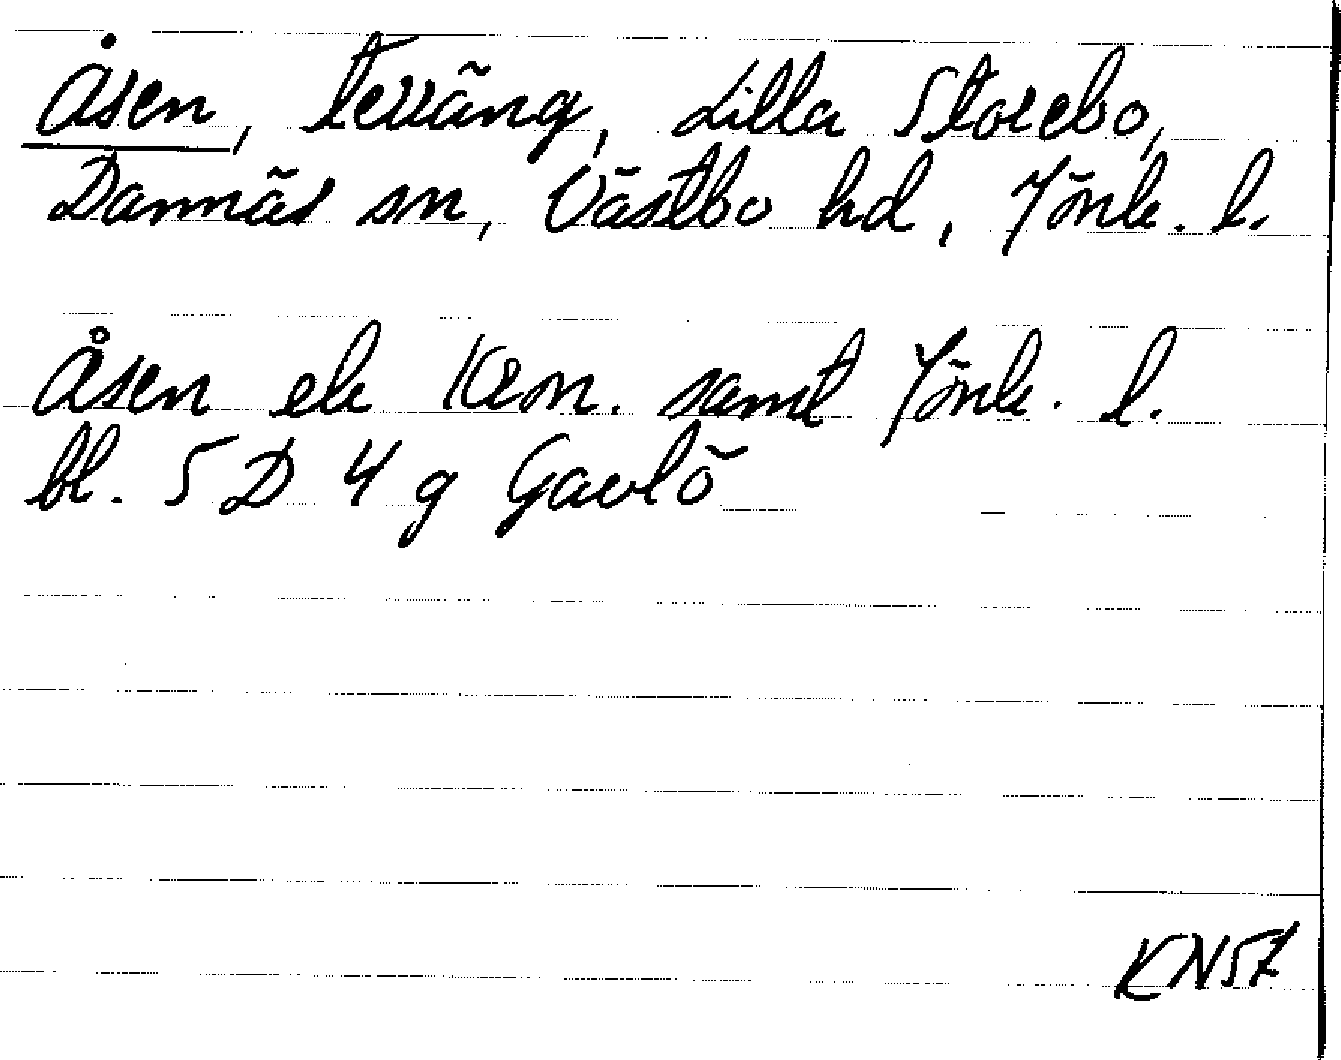 Åsen, terräng, Lilla Storebo,
Dannäs sn, Västbo hd, Jönk. l.
Åsen ek Kron. samt Jönk. l.
bl. 5 D 4 g Gavlö
KN57